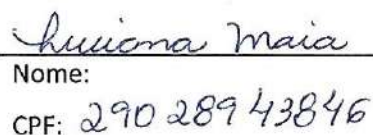 Luciana Maia
Nome:
CPF: 290 289 43846